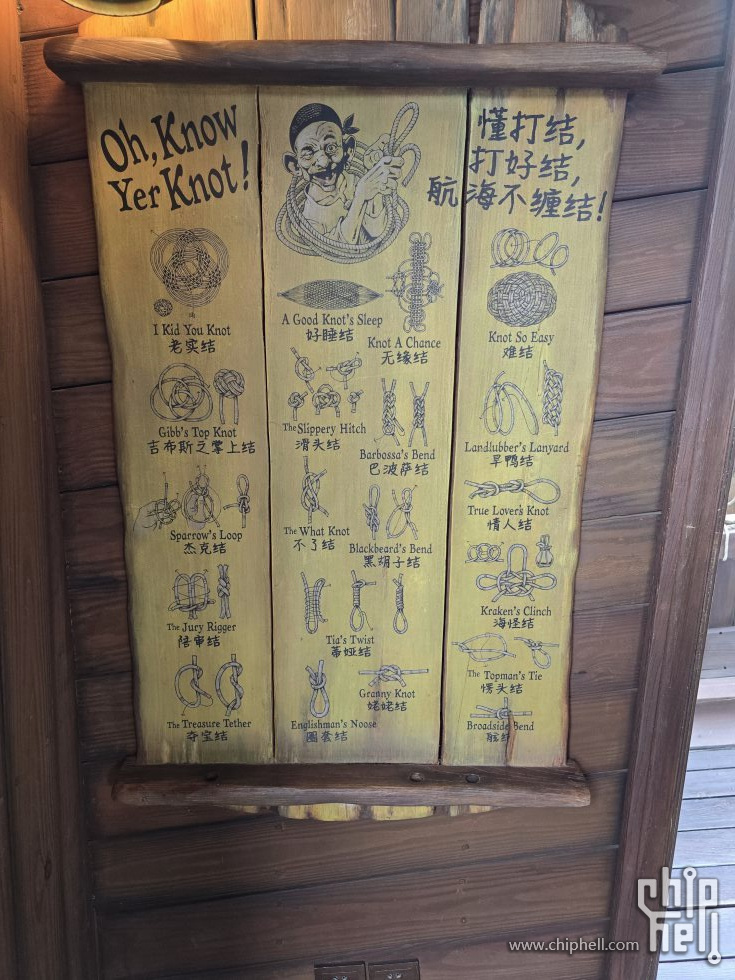 Oh, Know
Yer Knot!
懂打结,
打好结,
航海不缠结!
I Kid You Knot
老实结
Gibb's Top Knot
吉布斯之掌上结
Sparrow's Loop
杰克结
The Jury Rigger
陪审结
The Treasure Tether
夺宝结
A Good Knot's Sleep
好睡结
Knot A Chance
无缘结
The Slippery Hitch
滑头结
Barbossa's Bend
巴波萨结
The What Knot
不了结
Blackbeard's Bend
黑胡子结
Tia's Twist
蒂娅结
Granny Knot
姥姥结
Englishman's Noose
圈套结
Knot So Easy
难结
Landlubber's Lanyard
旱鸭结
True Lover's Knot
情人结
Kraken's Clinch
海怪结
The Topman's Tie
愣头结
Broadside Bend
www.chiphell.com
chip
hell